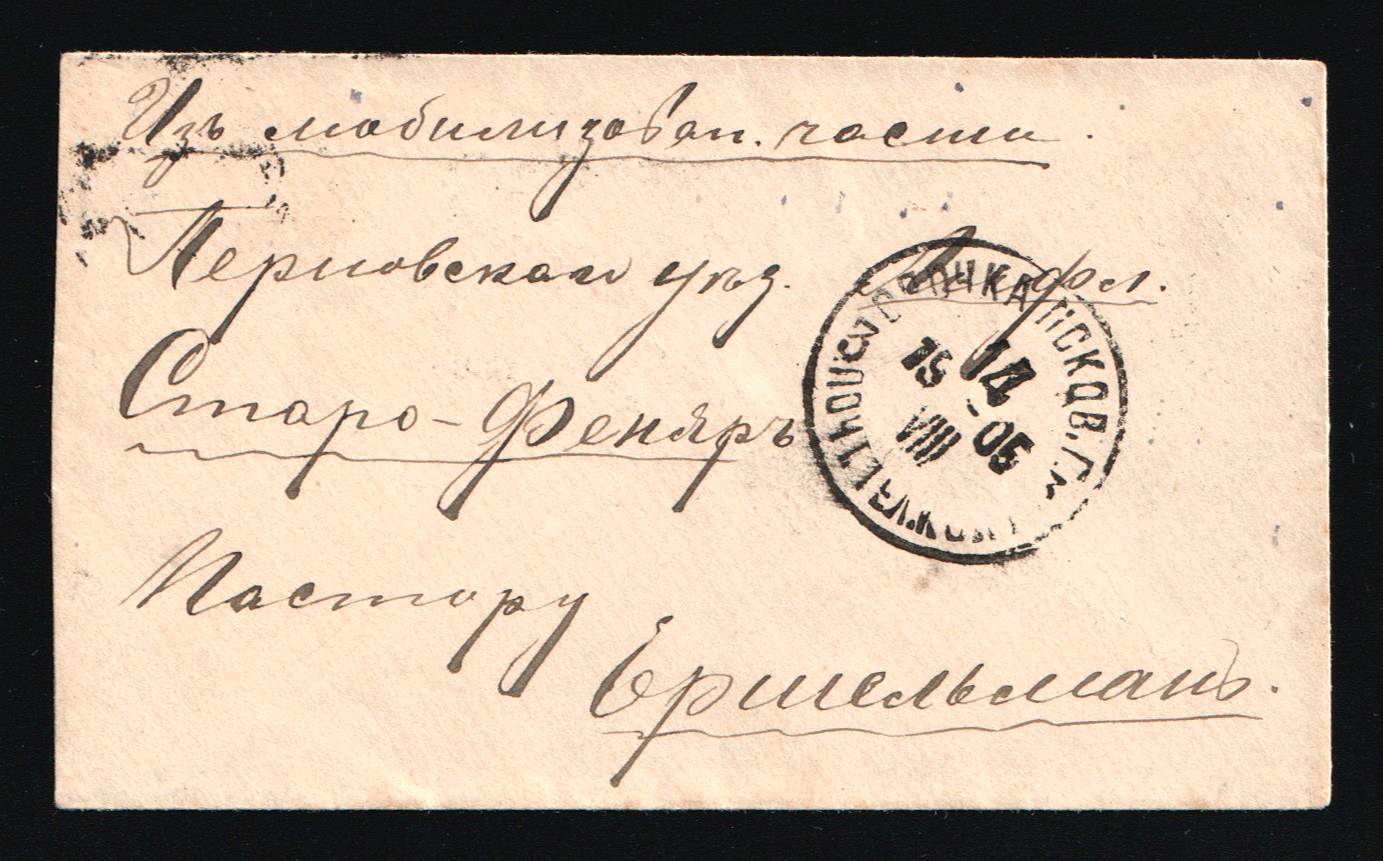 Изъ мобилизован. части.
Перновскаго уѣзд. Лифл.
Старо-Феняръ
Пастору
Ершельманъ.
ОПОЧКА ПСКОВ. Г.
15 14
VIII 05